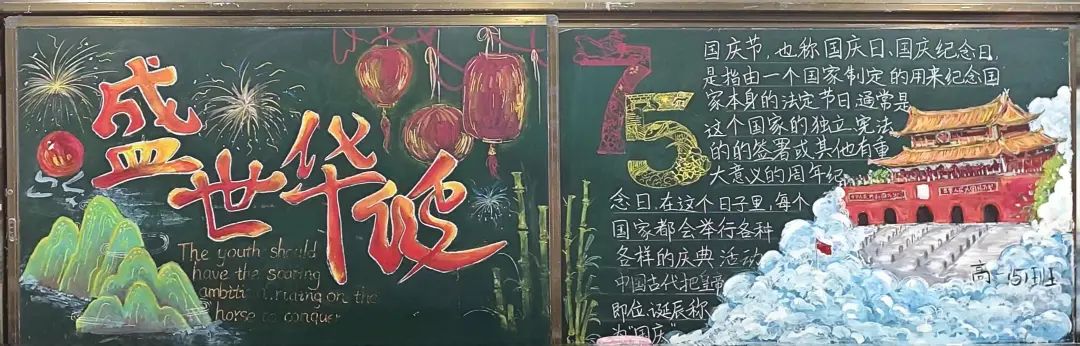 盛世华诞
The youth should
have the soaring
riding on the
horse to conquer
75
国庆节,也称国庆日、国庆纪念日,
是指由一个国家制定的用来纪念国
家本身的法定节日,通常是
这个国家的独立、宪法
的的签署或其他有重
大意义的周年纪
念日.在这个日子里,每个
国家都会举行各种
各样的庆典活动
中国古代把皇帝
即位、诞辰称
为“国庆”